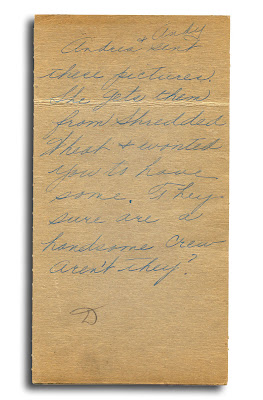 Andrea sent
these pictures.
She gets them
from Shredded
Wheat & wanted
you to have
some. They
sure are a
handsome crew
aren't they?
D